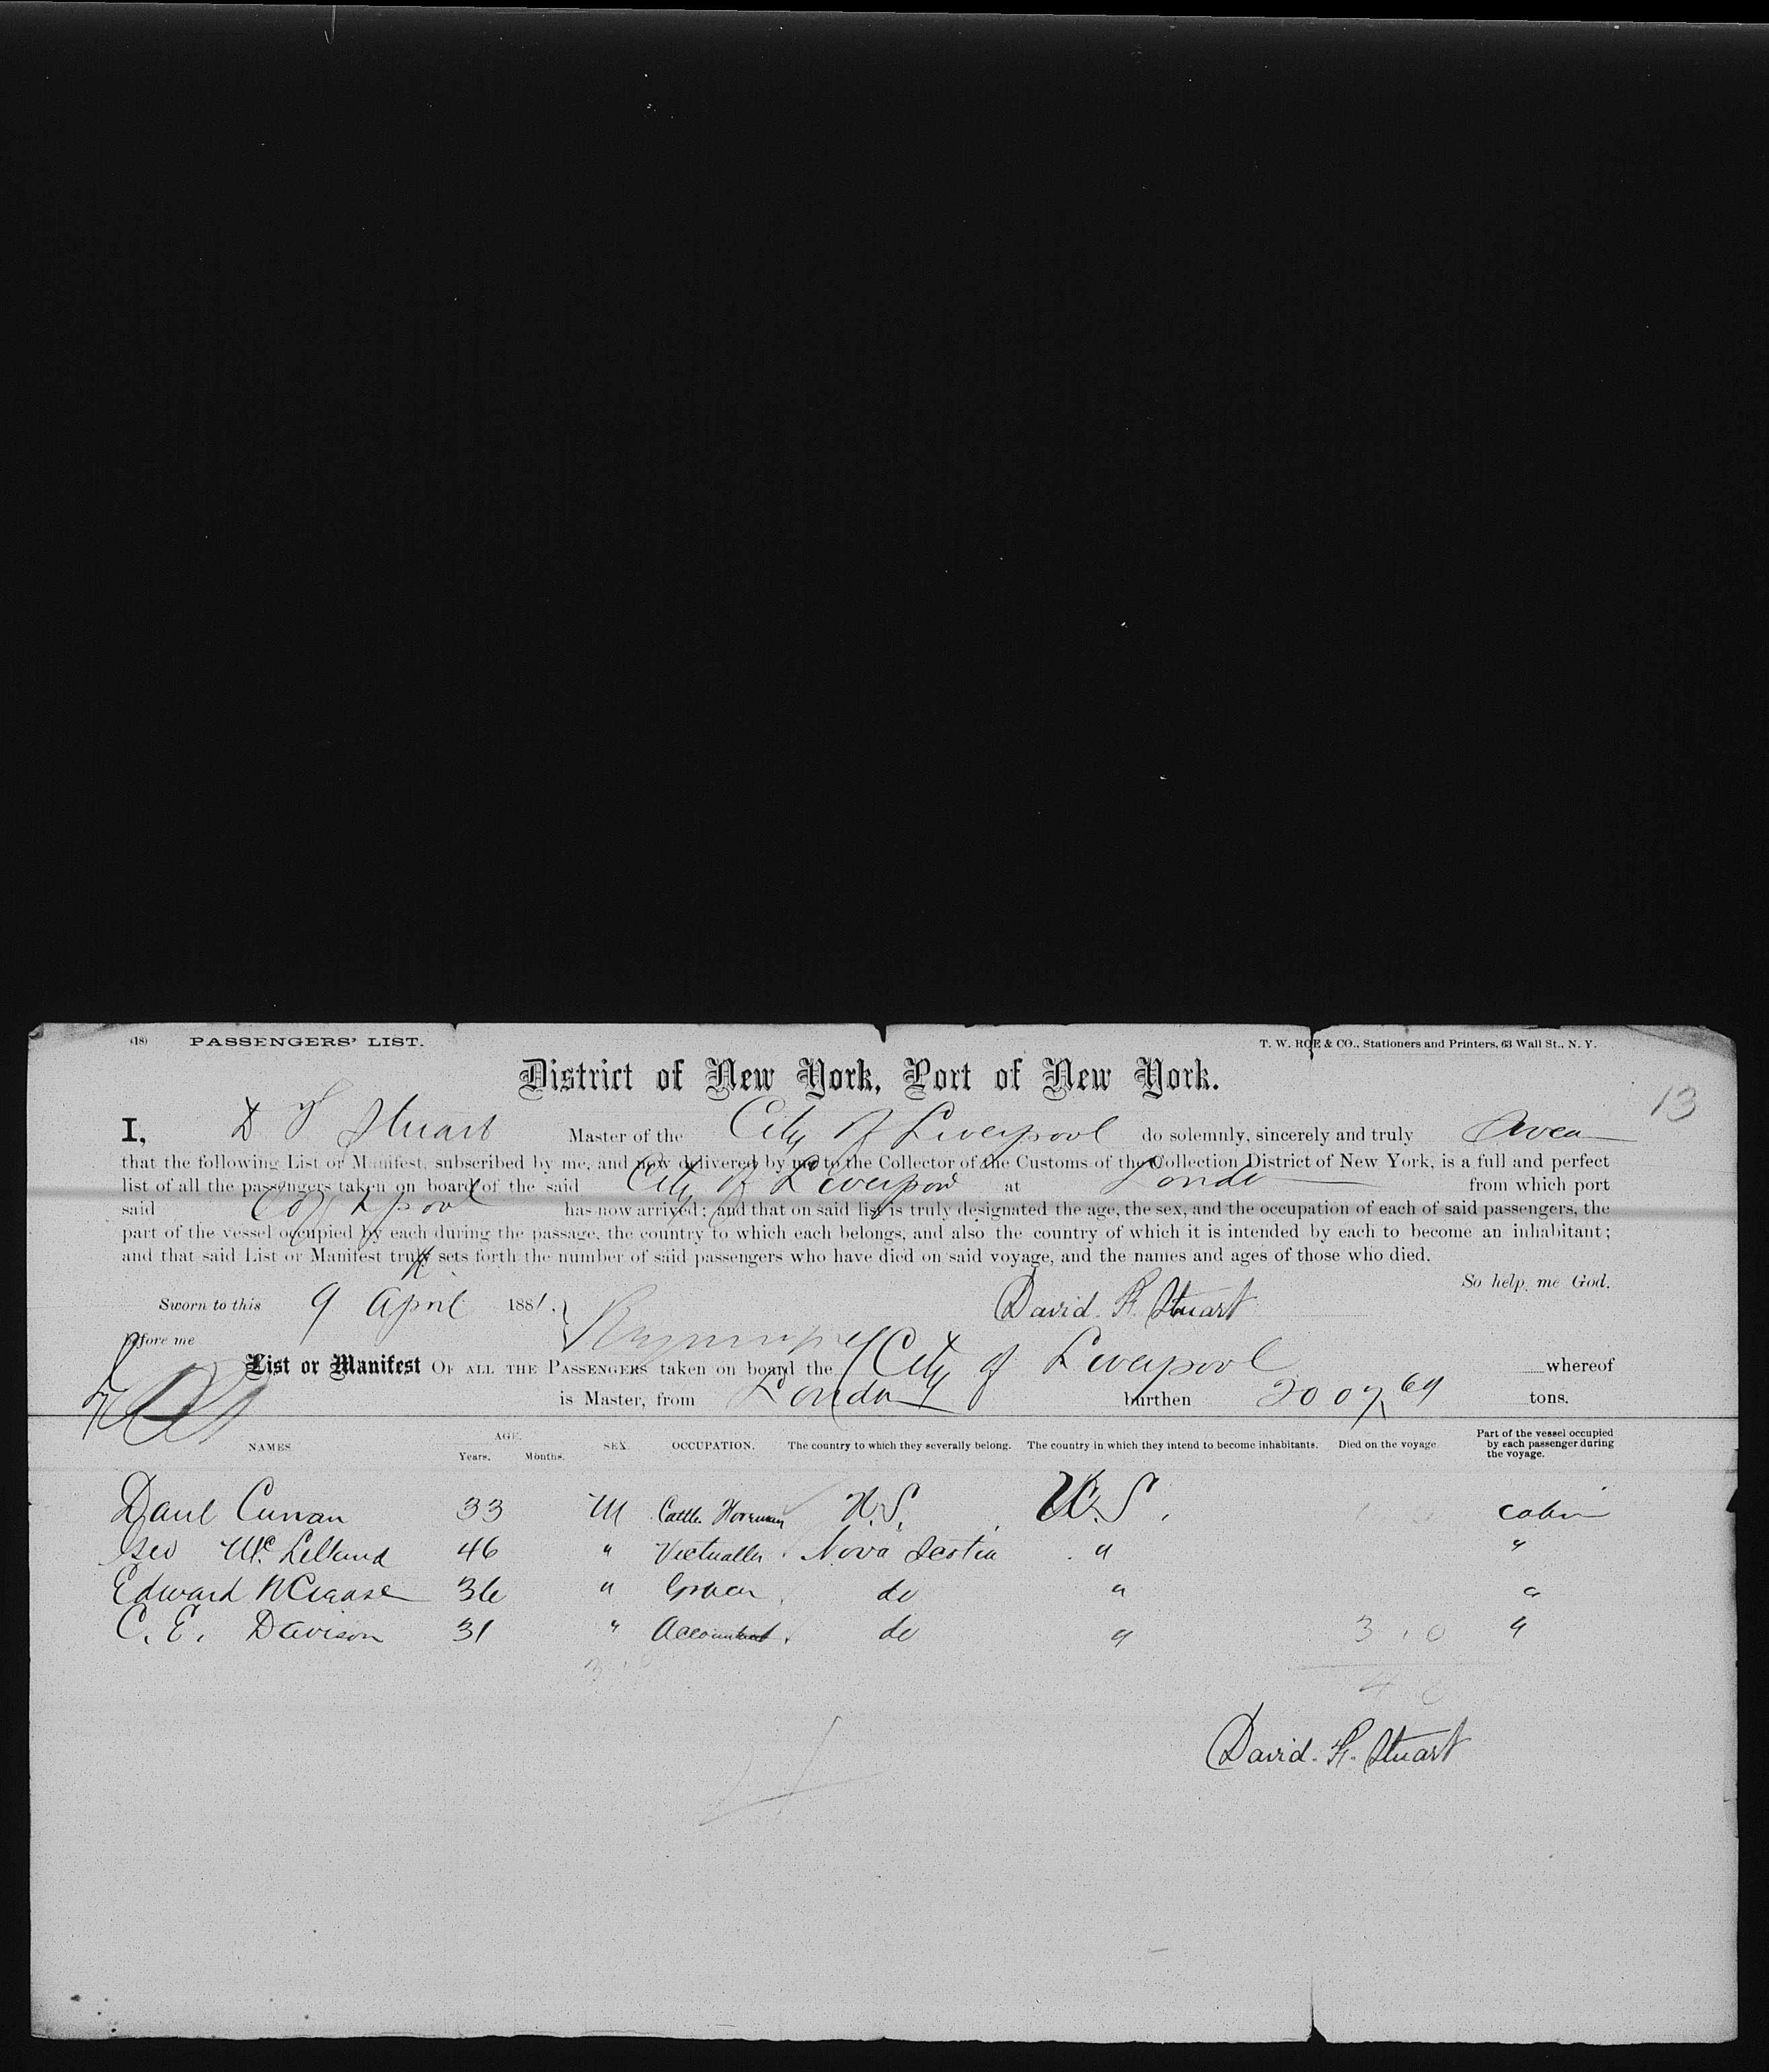 (18) PASSENGERS' LIST. T. W. ROE & CO., Stationers and Printers, 63 Wall St., N. Y.
District of New York, Port of New York.
13
I, D F Stuart Master of the City of Liverpool do solemnly, sincerely and truly Swear
that the following List or Manifest, subscribed by me, and now delivered by me to the Collector of the Customs of the Collection District of New York, is a full and perfect
list of all the passengers taken on board of the said City of Liverpool at London from which port
said City of Lpool has now arrived; and that on said list is truly designated the age, the sex, and the occupation of each of said passengers, the
part of the vessel occupied by each during the passage, the country to which each belongs, and also the country of which it is intended by each to become an inhabitant;
and that said List or Manifest truly sets forth the number of said passengers who have died on said voyage, and the names and ages of those who died.
So help me God.
Sworn to this 9 April 1881. David. F. Stuart
before me
List or Manifest OF ALL THE PASSENGERS taken on board the City of Liverpool whereof
is Master, from London burthen 2007 69 tons.
NAMES AGE. Years. Months. SEX. OCCUPATION. The country to which they severally belong. The country in which they intend to become inhabitants. Died on the voyage. Part of the vessel occupied by each passenger during the voyage.
Danl Curran 33 M Cattle Foreman U.S. U.S. cabin
Geo Mc Lelland 46 " Victualler Nova Scotia " "
Edward 36 " Grocer do " "
C. E. Davison 31 " Accountant do " 3 . 0 "
3 . 0
4 0
David. F. Stuart